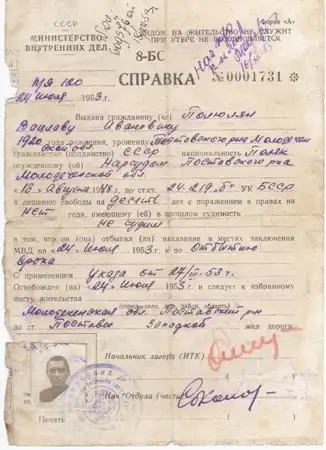 СССР
МИНИСТЕРСТВО
ВНУТРЕННИХ ДЕЛ
Форма „А“
ВИДОМ НА ЖИТЕЛЬСТВО НЕ СЛУЖИТ
ПРИ УТЕРЕ НЕ ВОЗОБНОВЛЯЕТСЯ
8-БС
СПРАВКА № 0001731
п/я 120
24 июня 1953 г.
Выдана гражданину (ке)
Вацлаву Ивановичу
1920 года рождения, уроженцу Поставского р-на Молодечен
ской обл.
гражданство (подданство) СССР национальность Поляк
осужденному (ой) Нарсудом Поставского р-на
Молодеченской обл.
13 Августа 1948 по ст.ст. 24-219 „б“ УК БССР
к лишению свободы на десять лет с поражением в правах на
нет года, имеющему (ей) в прошлом судимость
не судим
в том, что он (она) отбывал (ла) наказание в местах заключения
МВД по „24“ Июня 1953 г. и по отбытию
срока
С применением указа от 27/III-53 г.
Освобожден (на) „24“ Июня 1953 и следует к избранному
месту жительства
(город, село, дер., район, область)
Молодеченская обл. Поставский р-н
до ст. Поставы Западной жел дороги
Начальник лагеря (ИТК)
Нач Отдела (части)
Печать